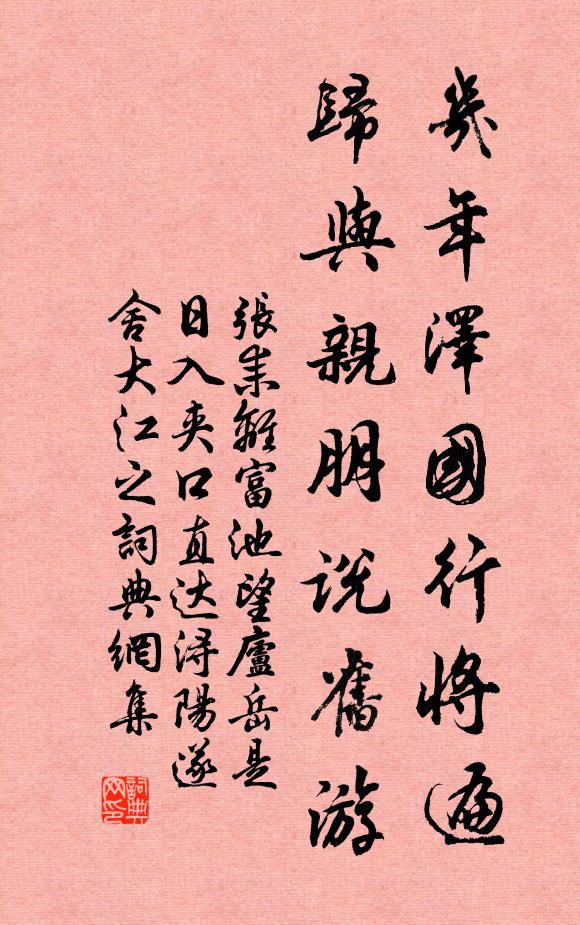 幾年澤國行將遍
歸與親朋說舊游
張耒離富池望廬岳是
日入夾口直达浔陽遂
舍大江之詞典網集
詞典
网印